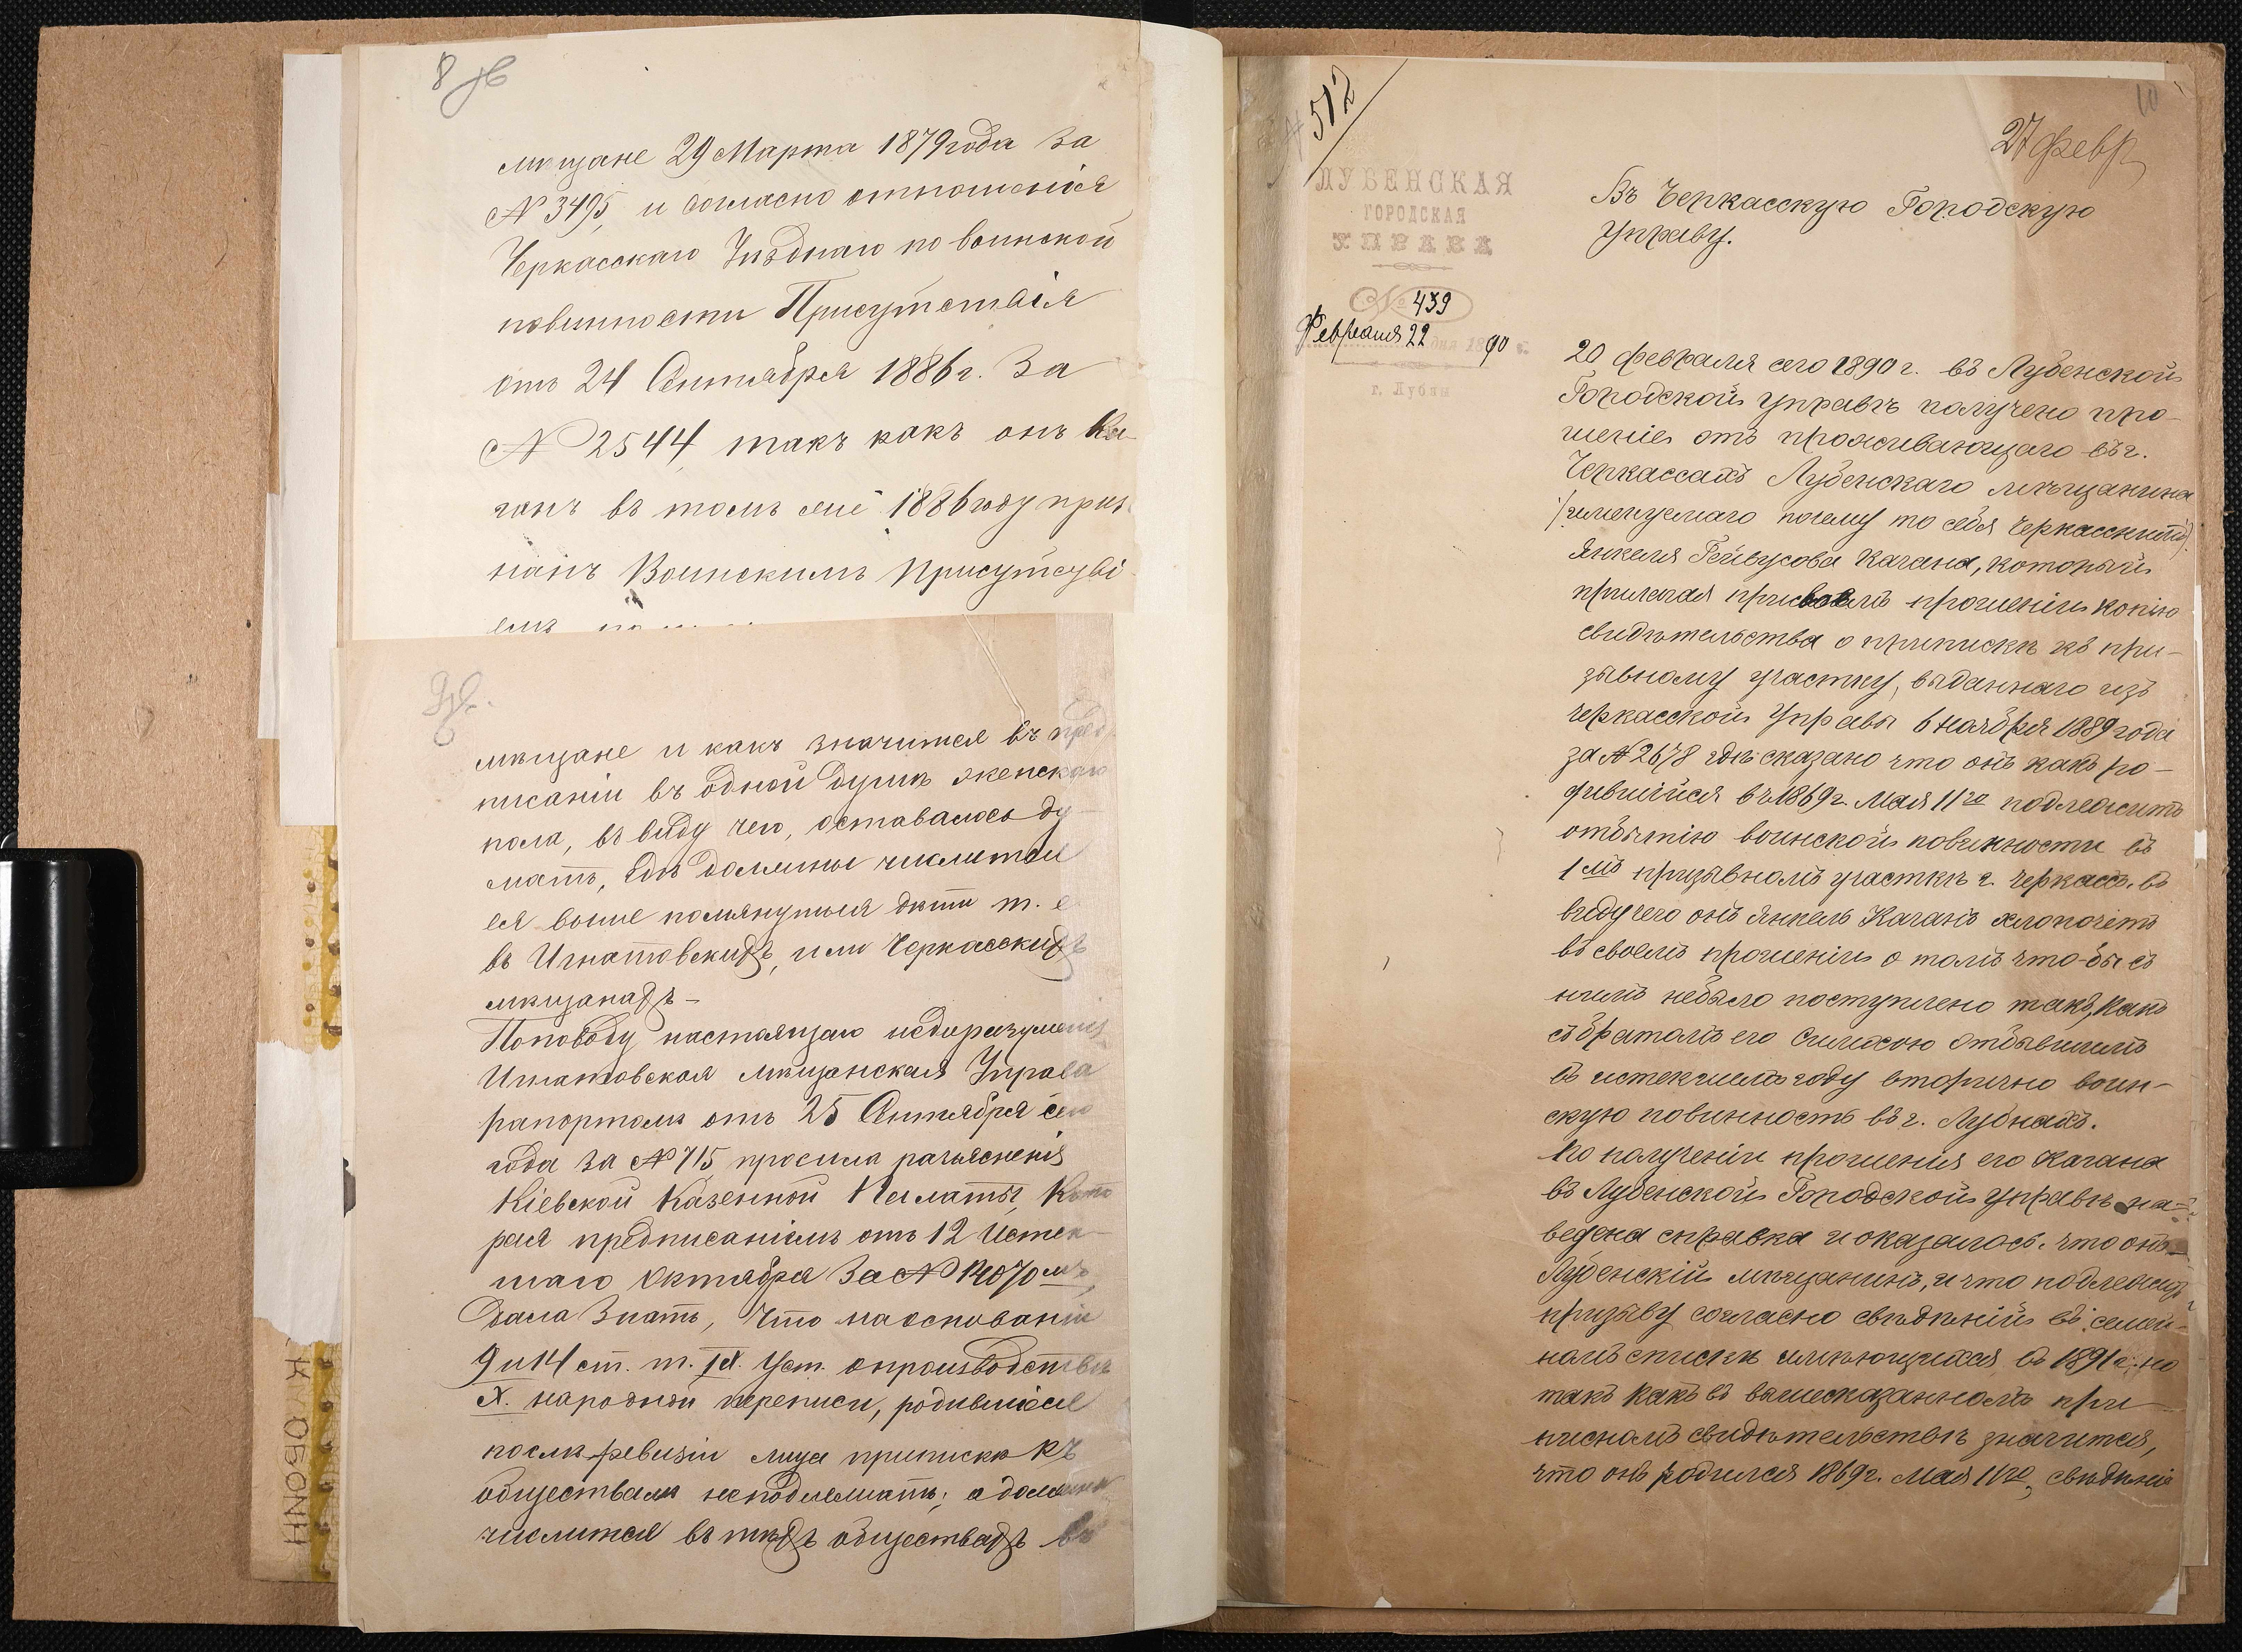 8 об
мѣщане 29 Марта 1879 года за
№ 3495, и согласно отношенія
Черкасскаго Уѣзднаго по воинской
повинности Присутствія
отъ 24 Сентября 1886 г. За
№ 2544, такъ какъ онъ Ка-
ганъ въ томъ же 1886 году приз
нанъ Воинскимъ Присутстві
емъ
9 об.
мѣщане и какъ значится въ пред
писаніи въ одной душѣ женскаго
пола, въ виду чего, оставалось ду-
мать, гдѣ должны числится
выше помянутыя дѣти т. е
въ Игнатовскихъ, или Черкасскихъ
мѣщанахъ –
Поповоду настоящаго недоразуменія
Игнатовская мѣщанская Управа
рапортомъ отъ 25 Сентября сего
года за № 715 просила разъясненія
Кіевской Казенной Палаты, Кото
рая предписаніемъ отъ 12 Истек-
шаго Октября За № 14070мъ,
Дала Знать, что на основаніи
9 и 14 ст. т. IX. Уст. о производствѣ
X. народной переписи, родившіеся
послѣ ревизіи лица припискѣ къ
обществамъ неподлежатъ; а должны
числится въ тѣхъ обществахъ въ
512
10
27 февр
ЛУБЕНСКАЯ
ГОРОДСКАЯ
УПРАВА
№ 439
Февраля 22 дня 1890 г.
г. Лубны
Въ Черкасскую Городскую
Управу.
20 февраля сего 1890 г. въ Лубенской
Городской управѣ получено про-
шеніе отъ проживающаго въ г.
Черкассахъ Лубенскаго мѣщанина
(именуемаго почему то себя Черкасскимъ)
Янкеля Лейбусова Кагана, который
прилагая при своемъ прошеніи копію
свидѣтельства о припискѣ къ при-
зывному участку, выданнаго изъ
Черкасской Управы 6 Ноября 1889 года
за № 2678 гдѣ сказано что онъ какъ ро-
дившійся въ 1869 г. Мая 11го подлежитъ
отбытію воинской повинности въ
1мъ призывномъ участкѣ г. Черкасъ. въ
виду чего онъ Янкель Каганъ хлопочетъ
въ своемъ прошеніи о томъ что-бы съ
нимъ небыло поступлено такъ, какъ
съ братомъ его Симхою отбывшемъ
въ истекшемъ году вторично воин-
скую повинность въ г. Лубнахъ.
По полученіи прошенія его Кагана
въ Лубенской Городской управѣ на-
ведена справка и оказалось. что онъ
Лубенскій мѣщанинъ, и что подлежитъ
призыву согласно свѣдѣній въ семей-
номъ спискѣ имѣющихся въ 1891 г. но
такъ какъ въ вышесказанномъ при-
писномъ свидѣтельствѣ значится,
что онъ родился 1869 г. Мая 11го, свѣдѣнія